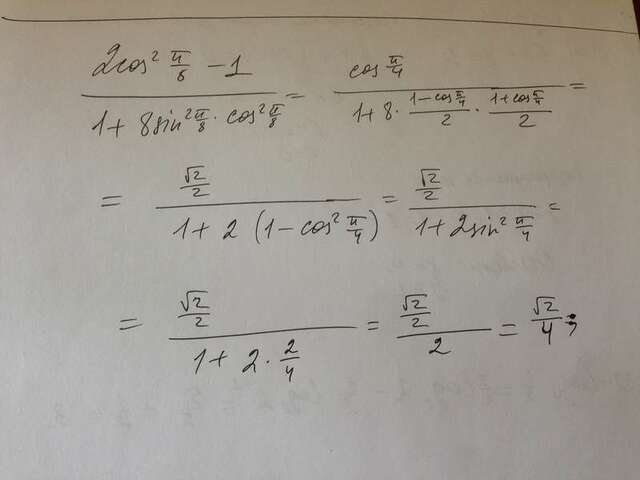 (2cos² π/8 − 1)/(1 + 8sin² π/8 · cos² π/8) = (cos π/4)/(1 + 8 · (1 − cos π/4)/2 · (1 + cos π/4)/2) =
= (√2/2)/(1 + 2 (1 − cos² π/4)) = (√2/2)/(1 + 2sin² π/4) =
= (√2/2)/(1 + 2 · 2/4) = (√2/2)/2 = √2/4;